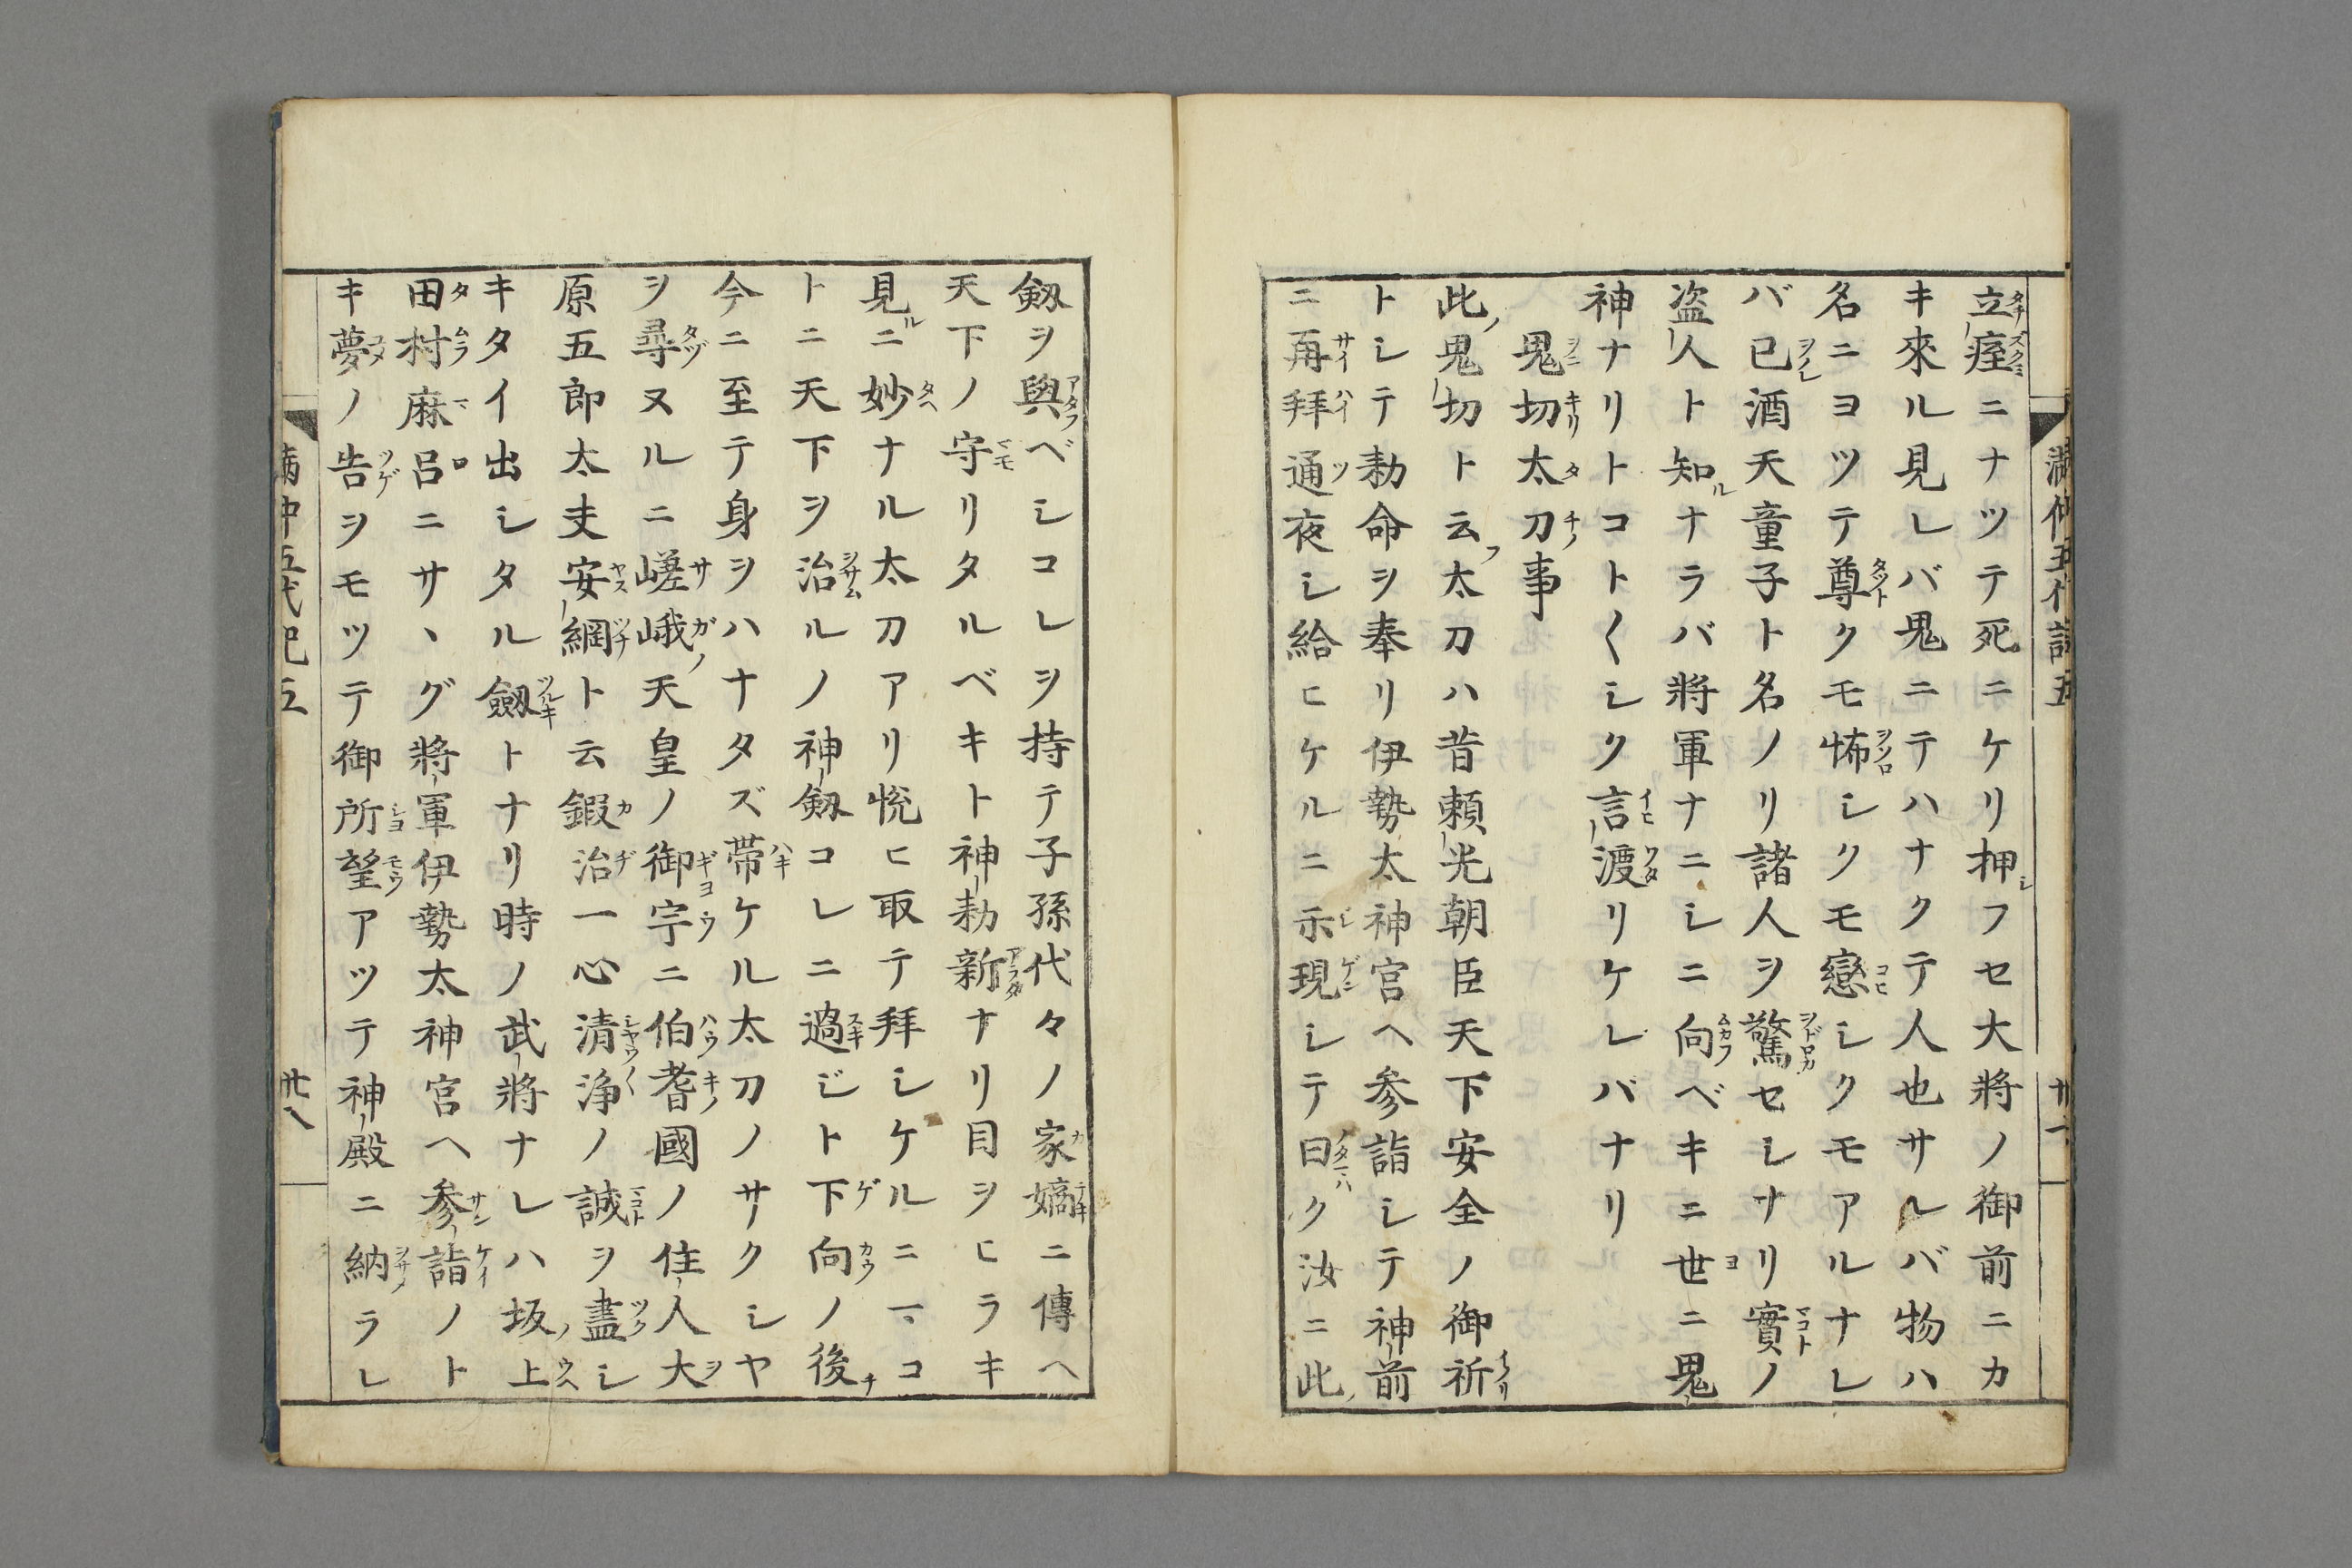 立痓ニナツテ死ニケリ押フセ大將ノ御前ニカ
キ來ル見レバ鬼ニテハナクテ人也サルバ物ハ
名ニヨツテ尊クモ怖シクモ戀シクモアルナレ
バ已酒天童子ト名ノリ諸人ヲ驚セシナリ實ノ
盗人ト知ナラバ將軍ナニシニ向ベキニ世ニ鬼
神ナリトコト〱シク言渡リケレバナリ
鬼切太刀事
此鬼切ト云太刀ハ昔頼光朝臣天下安全ノ御祈
トシテ勅命ヲ奉リ伊勢太神宮ヘ参詣シテ神前
ニ再拜通夜シ給ヒケルニ示現シテ曰ク汝ニ此
劔ヲ與ベシコレヲ持テ子孫代々ノ家嫡ニ傳ヘ
天下ノ守リタルベキト神勅新ナリ目ヒラキ
見ニ妙ナル太刀アリ悦ヒ取テ拜シケルニマコ
トニ天下ヲ治ルノ神劔コレニ過ジト下向ノ後
今ニ至テ身ヲハナタズ帶ケル太刀ノサクシヤ
ヲ尋ヌルニ嵯峨天皇ノ御宇ニ伯耆國ノ住人大
原五郎太夫安綱ト云鍜治一心清浄ノ誠ヲ盡シ
キタイ出シタル劔トナリ時ノ武將ナレハ坂上
田村麻呂ニサヽグ將軍伊勢太神宮ヘ参詣ノト
キ夢ノ告ヲモツテ御所望アツテ神殿ニ納ラレ